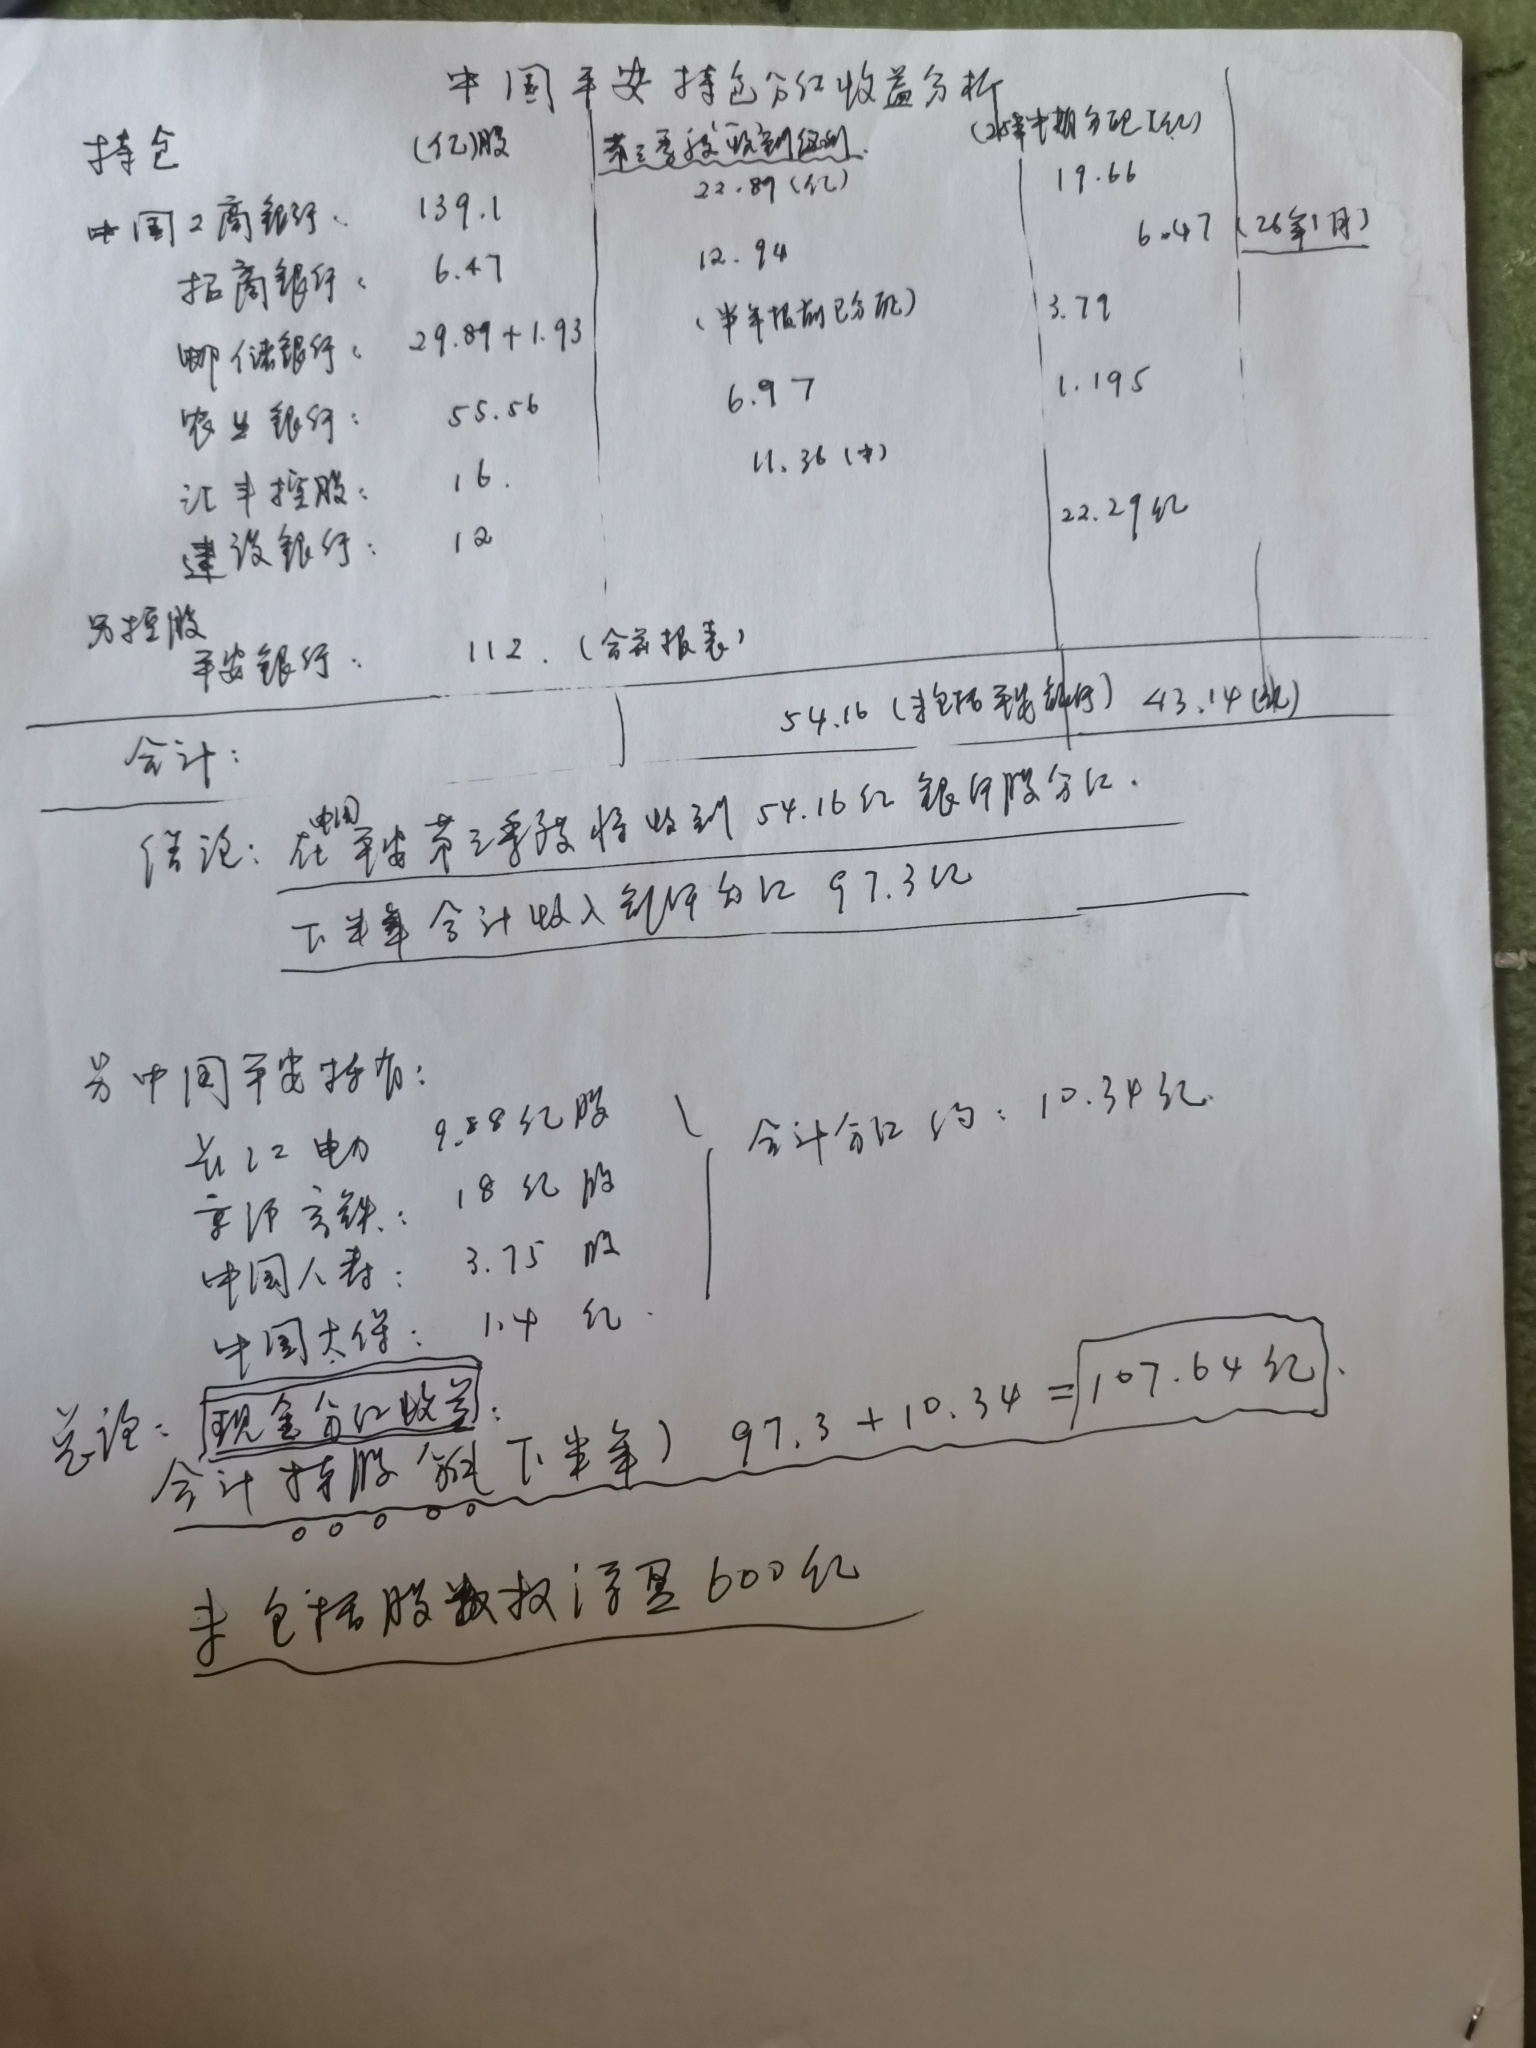 中国平安持仓分红收益分析
持仓 (亿)股 第三季度收到红利 (25年中期分配(亿)
中国工商银行: 139.1 22.89(亿) 19.66
招商银行: 6.47 12.94 6.47(26年1月)
邮储银行: 29.89+1.93 (半年报前已分配) 3.79
农业银行: 55.56 6.97 1.195
汇丰控股: 16. 11.36(中)
建设银行: 12 22.29亿
另控股
平安银行: 112. (合并报表)
合计: 54.16(未包括平安银行) 43.14(亿)
结论: 在中国平安第三季度将收到54.16亿银行股分红.
下半年合计收入银行分红97.3亿
另中国平安持有:
长江电力 9.88亿股 合计分红约: 10.34亿.
京沪高铁: 18亿股
中国人寿: 3.75股
中国太保: 1.4亿.
总论: 现金分红收益:
合计持股 下半年) 97.3+10.34=107.64亿.
未包括股权浮盈600亿